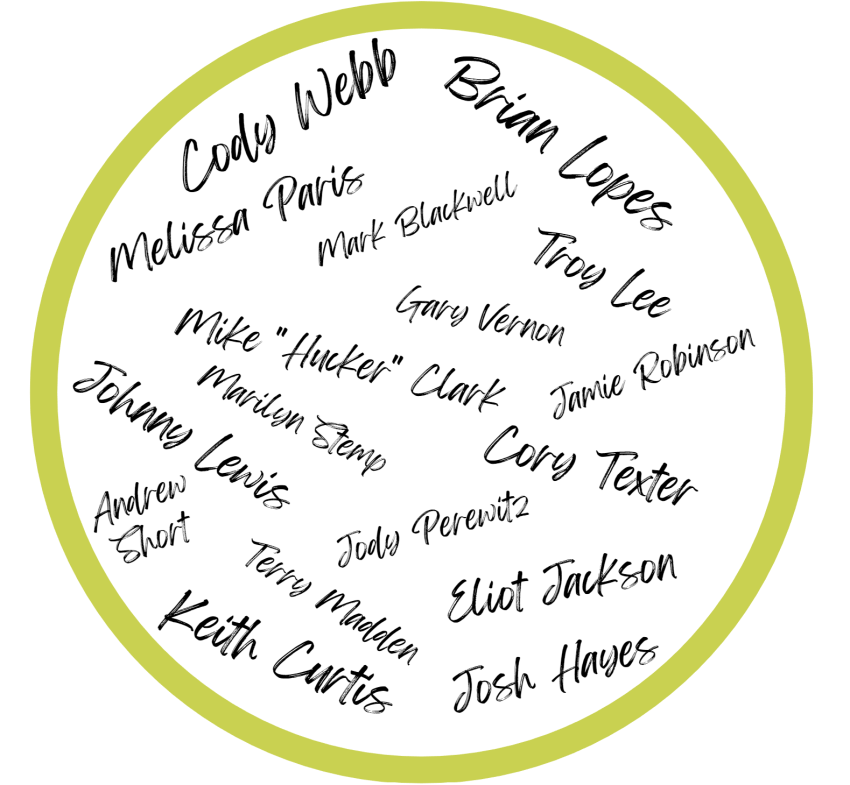 Cody Webb
Brian Lopes
Melissa Paris
Mark Blackwell
Troy Lee
Gary Vernon
Mike "Hucker" Clark
Jamie Robinson
Johnny Lewis
Marilyn Stemp
Cory Texter
Andrew
Short
Jody Perewitz
Terry Madden
Eliot Jackson
Keith Curtis
Josh Hayes